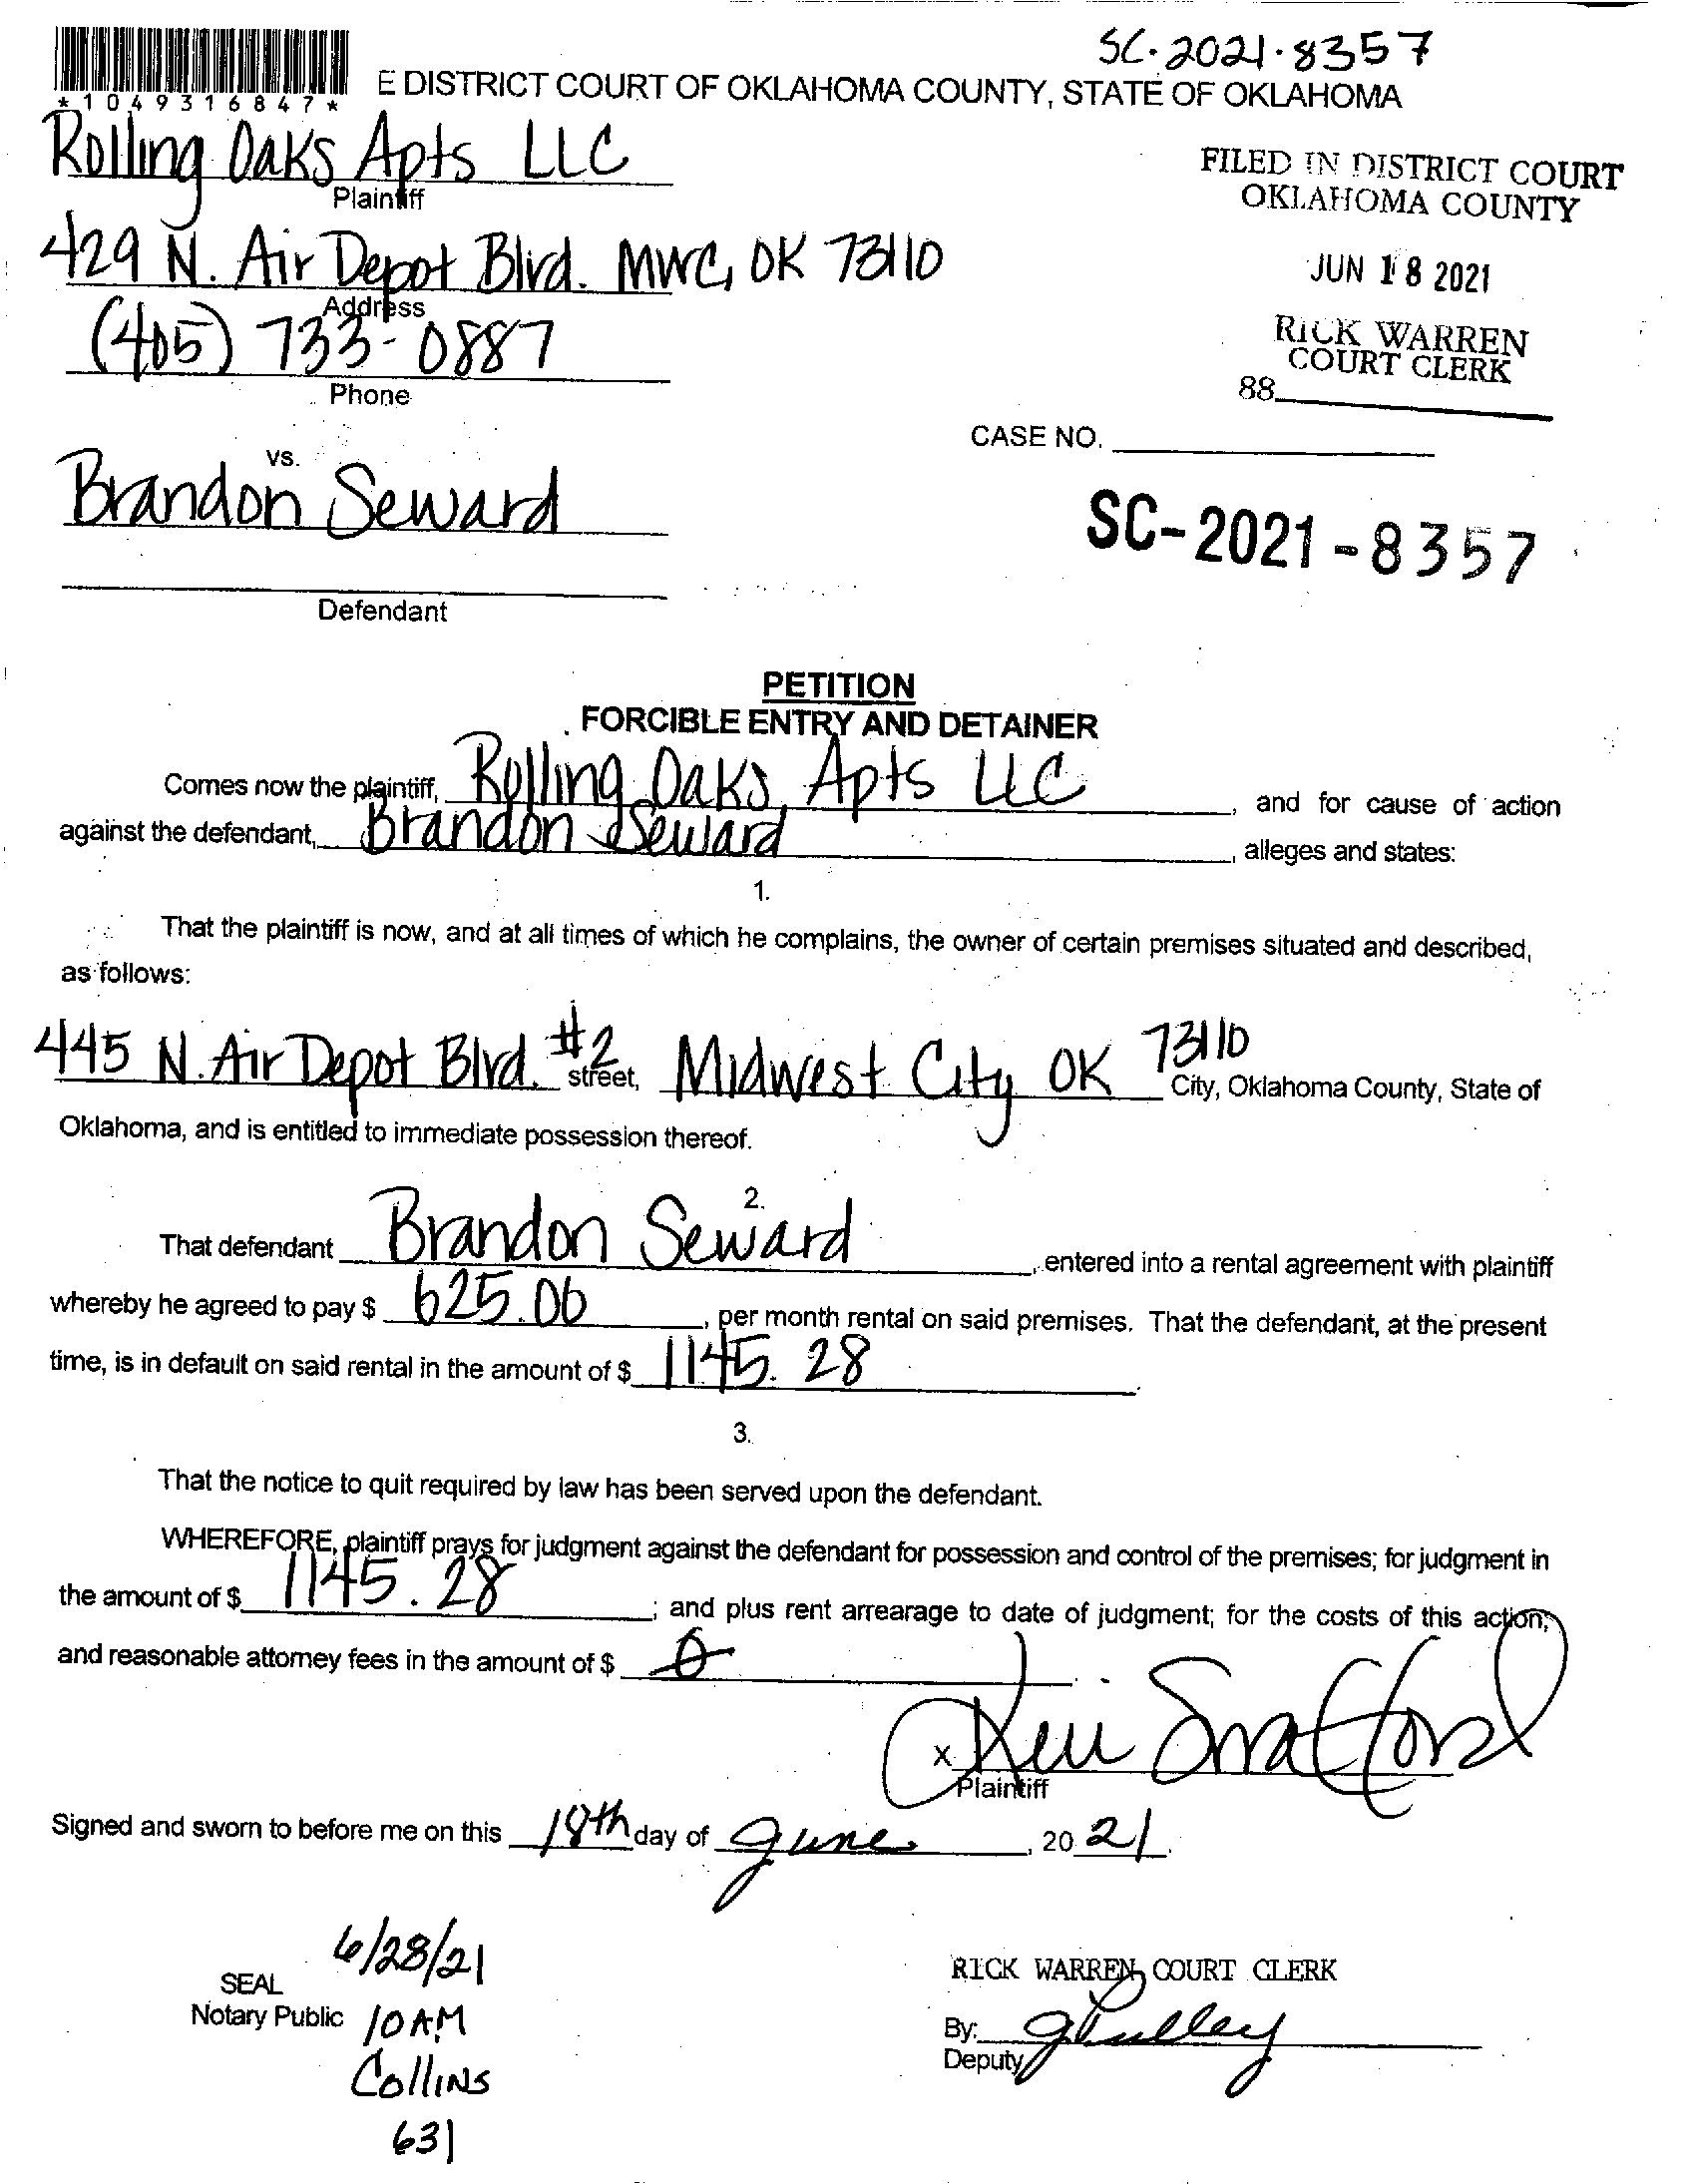 SC-2021-8357
*1049316847*
E DISTRICT COURT OF OKLAHOMA COUNTY, STATE OF OKLAHOMA
Rolling Oaks Apts LLC
Plaintiff
429 N. Air Depot Blvd. MWC, OK 73110
Address
(405) 733-0887
Phone
FILED IN DISTRICT COURT
OKLAHOMA COUNTY
JUN 18 2021
RICK WARREN
COURT CLERK
88
CASE NO.
vs.
Brandon Seward
SC-2021-8357
Defendant
PETITION
FORCIBLE ENTRY AND DETAINER
Comes now the plaintiff, Rolling Oaks Apts LLC, and for cause of action
against the defendant, Brandon Seward, alleges and states:
1.
That the plaintiff is now, and at all times of which he complains, the owner of certain premises situated and described,
as follows:
445 N. Air Depot Blvd. #2 street, Midwest City OK 73110 City, Oklahoma County, State of
Oklahoma, and is entitled to immediate possession thereof.
2.
That defendant Brandon Seward, entered into a rental agreement with plaintiff
whereby he agreed to pay $ 625.00, per month rental on said premises. That the defendant, at the present
time, is in default on said rental in the amount of $ 1145.28.
3.
That the notice to quit required by law has been served upon the defendant.
WHEREFORE, plaintiff prays for judgment against the defendant for possession and control of the premises; for judgment in
the amount of $ 1145.28; and plus rent arrearage to date of judgment; for the costs of this action;
and reasonable attorney fees in the amount of $ 0.
x
Plaintiff
Signed and sworn to before me on this 18th day of June, 20 21.
6/28/21
SEAL
Notary Public 10 AM
Collins
631
RICK WARREN, COURT CLERK
By:
Deputy